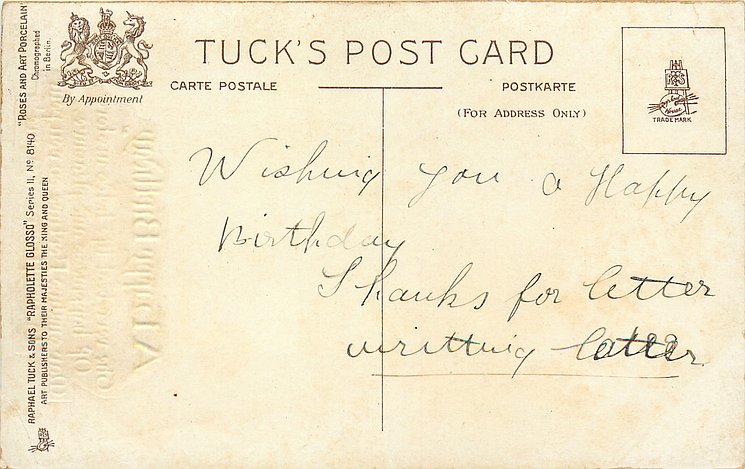 TUCK'S POST CARD
CARTE POSTALE
POSTKARTE
(FOR ADDRESS ONLY)
By Appointment
TRADE MARK
"ROSES AND ART PORCELAIN"
Chromographed
in Berlin.
RAPHAEL TUCK & SONS "RAPHOLETTE GLOSSO" Series II, No 8140
ART PUBLISHERS TO THEIR MAJESTIES THE KING AND QUEEN
Wishing you a Happy
Birthday
Thanks for letter
writting later
A Happy Birthday